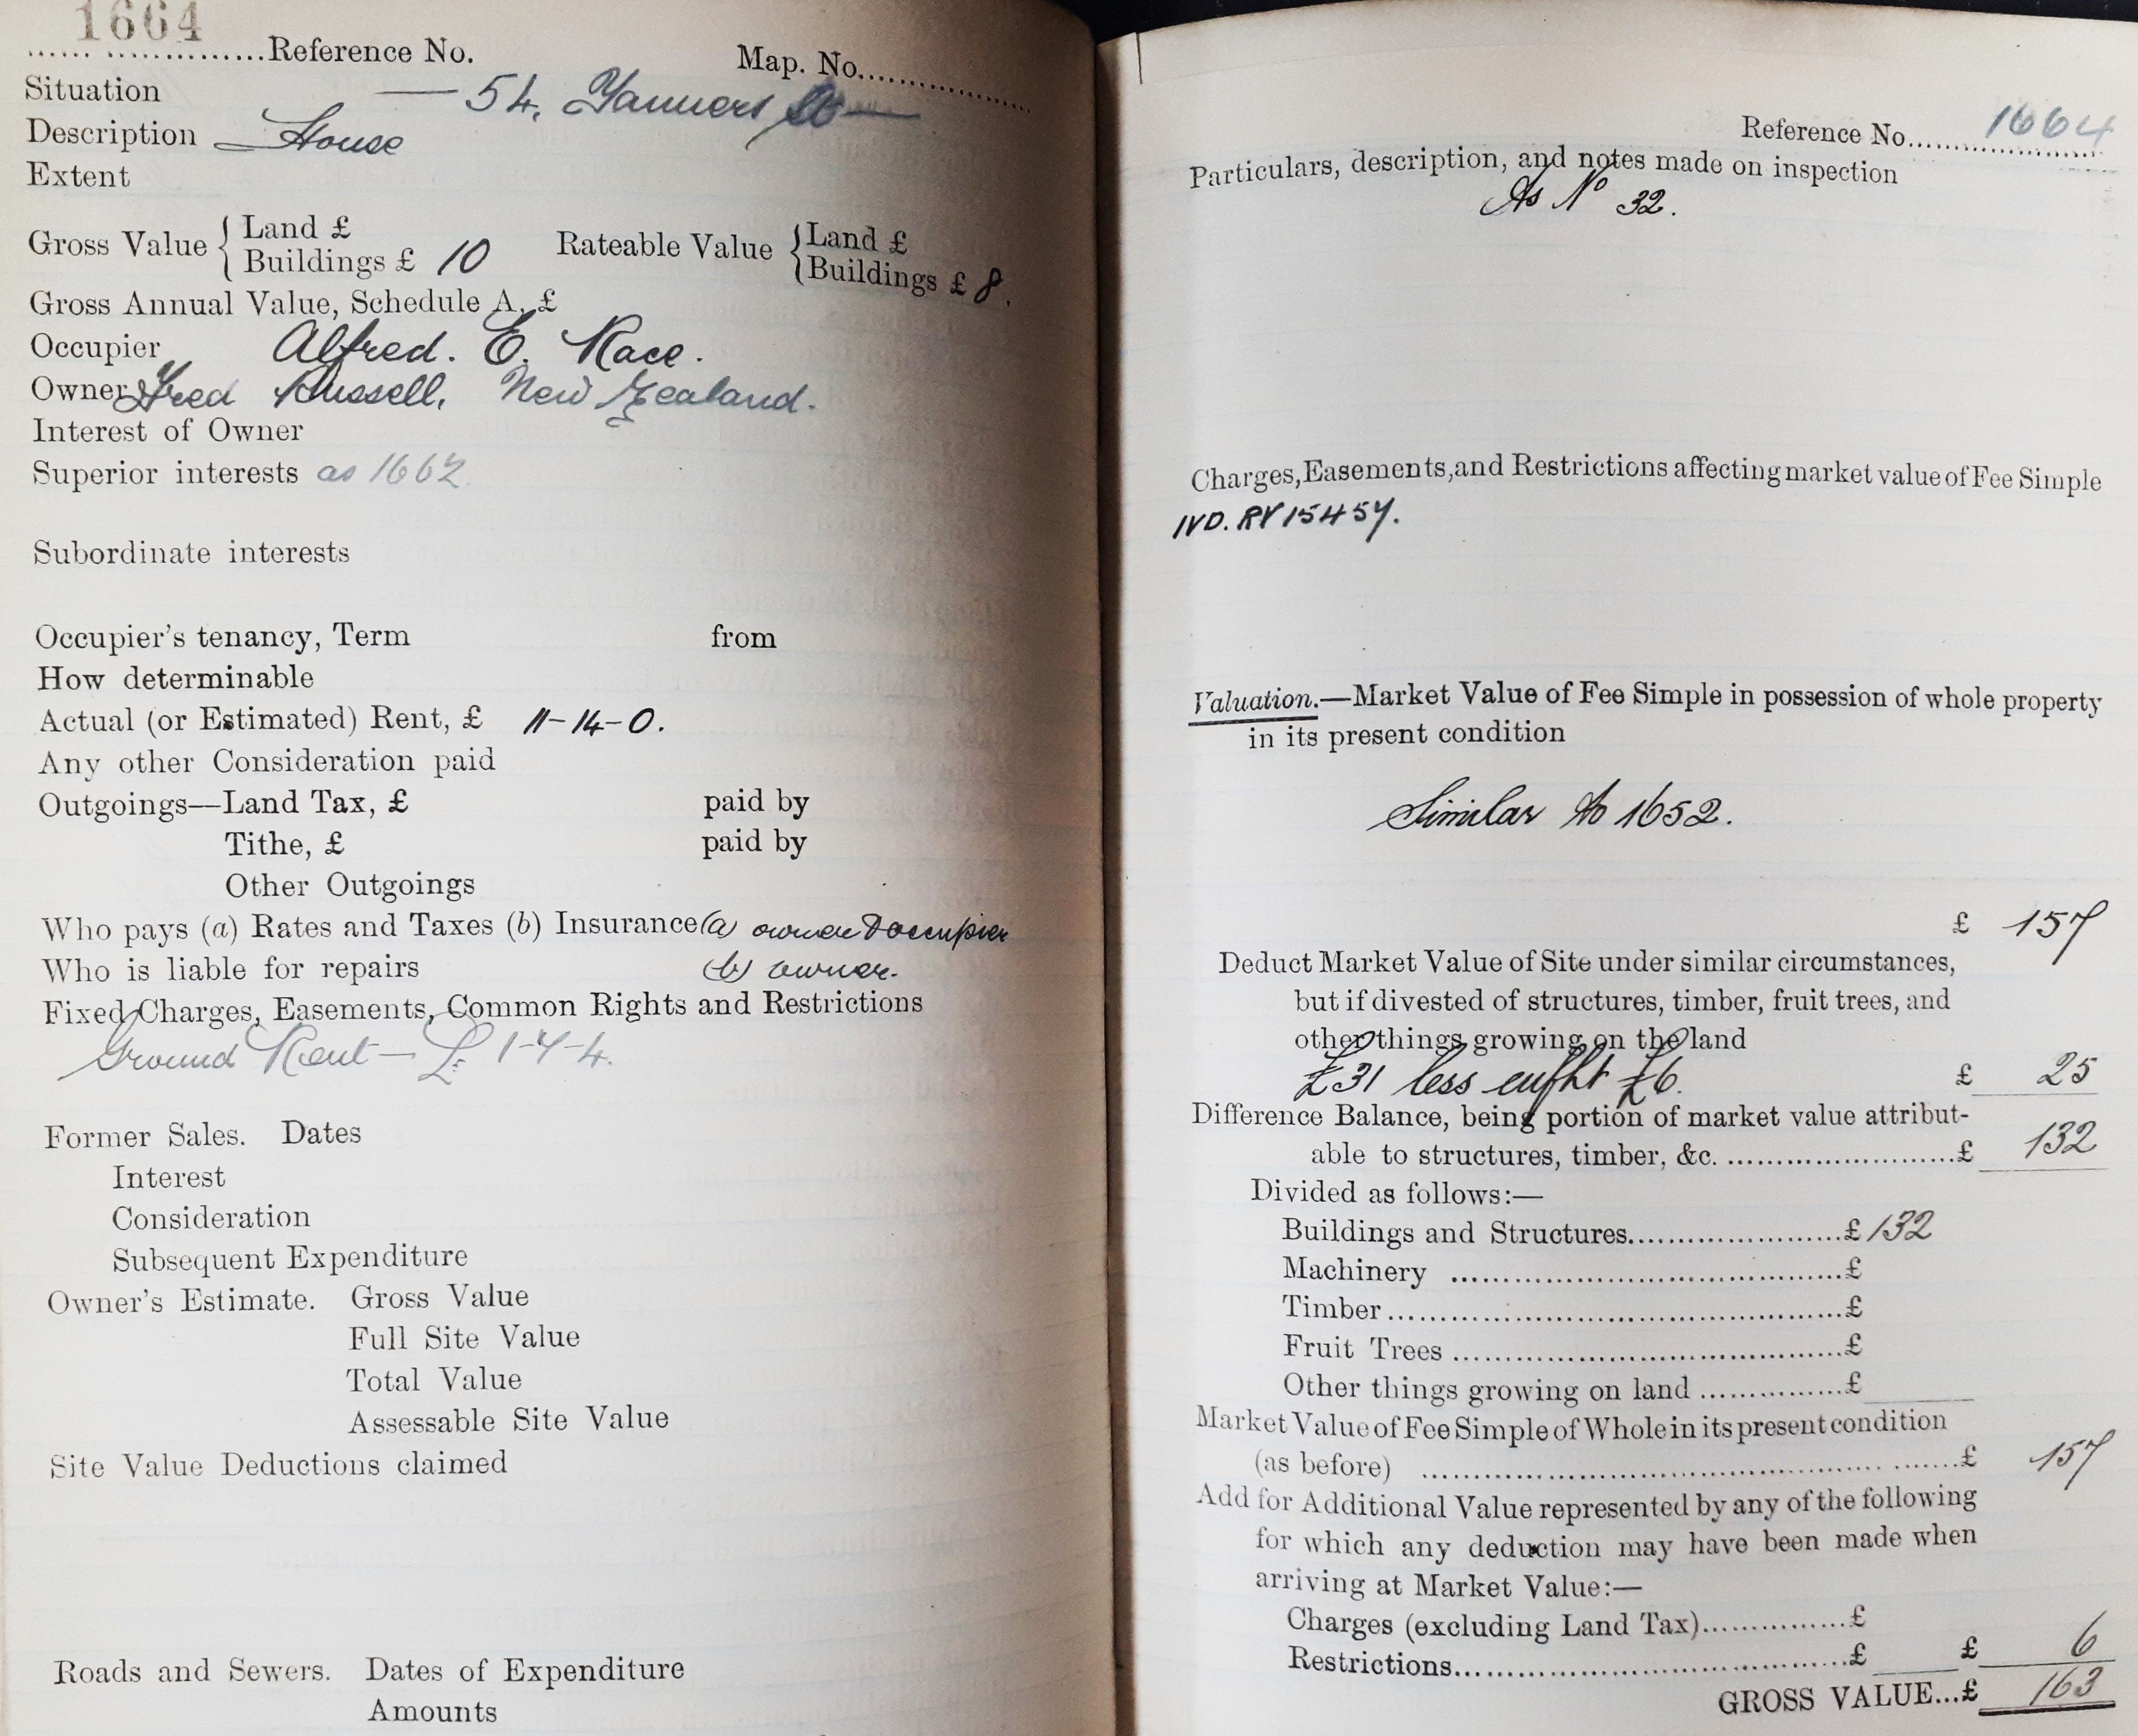 1664
Reference No. Map. No.
Situation — 54, Yanners St —
Description — House
Extent
Gross Value { Land £
Buildings £ 10
Rateable Value { Land £
Buildings £ 8.
Gross Annual Value, Schedule A, £
Occupier Alfred. E. Race.
Owner Fred Russell, New Zealand.
Interest of Owner
Superior interests as 1662.
Subordinate interests
Occupier's tenancy, Term from
How determinable
Actual (or Estimated) Rent, £ 11-14-0.
Any other Consideration paid
Outgoings—Land Tax, £ paid by
Tithe, £ paid by
Other Outgoings
Who pays (a) Rates and Taxes (b) Insurance (a) owner & occupier
Who is liable for repairs (b) owner.
Fixed Charges, Easements, Common Rights and Restrictions
Ground Rent — £ 1-7-4.
Former Sales. Dates
Interest
Consideration
Subsequent Expenditure
Owner's Estimate. Gross Value
Full Site Value
Total Value
Assessable Site Value
Site Value Deductions claimed
Roads and Sewers. Dates of Expenditure
Amounts
Reference No. 1664
Particulars, description, and notes made on inspection
As No 32.
Charges, Easements, and Restrictions affecting market value of Fee Simple
IVD. RV 15457.
Valuation.—Market Value of Fee Simple in possession of whole property
in its present condition
Similar to 1652.
£ 157
Deduct Market Value of Site under similar circumstances,
but if divested of structures, timber, fruit trees, and
other things growing on the land
£31 less £6. £ 25
Difference Balance, being portion of market value attribut-
able to structures, timber, &c. £ 132
Divided as follows:—
Buildings and Structures £ 132
Machinery £
Timber £
Fruit Trees £
Other things growing on land £
Market Value of Fee Simple of Whole in its present condition
(as before) £ 157
Add for Additional Value represented by any of the following
for which any deduction may have been made when
arriving at Market Value:—
Charges (excluding Land Tax) £
Restrictions £ £ 6
GROSS VALUE...£ 163